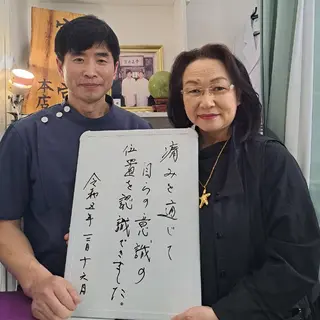 痛みを通じて
自らの意識の
位置を認識できました。
令和五年 三月十六日
本店